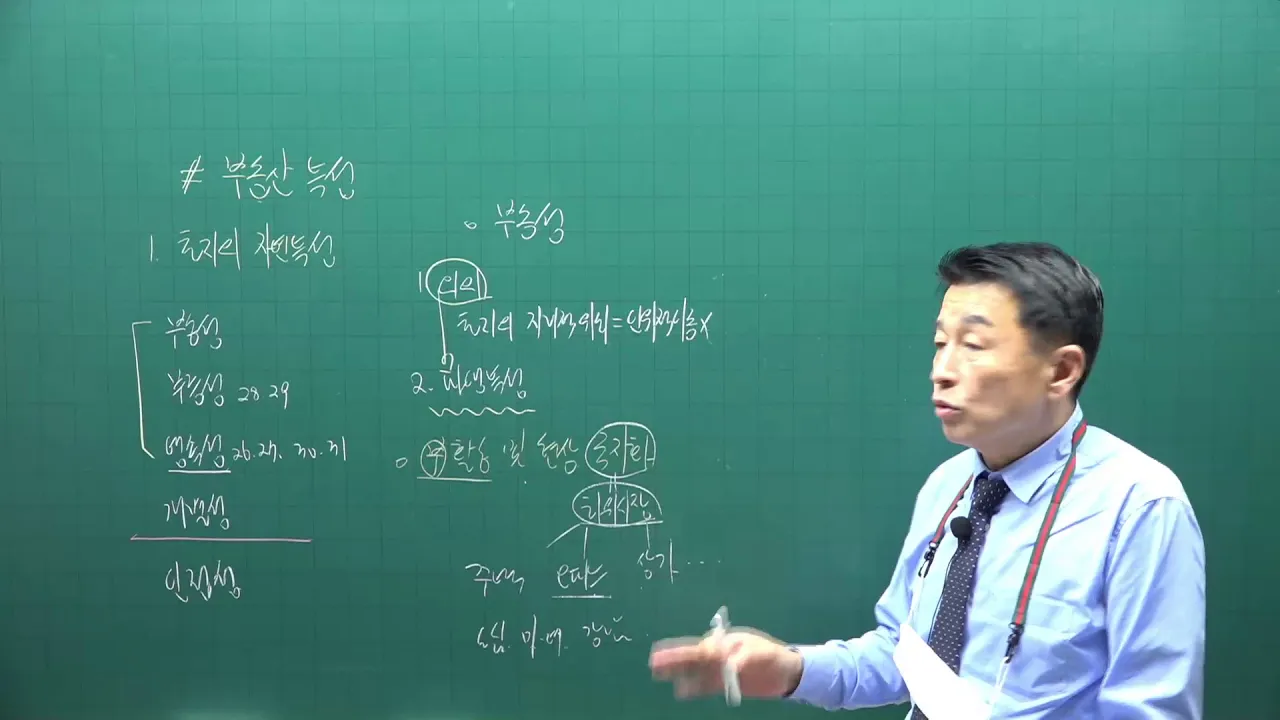 # 부동산 특성
1. 토지의 자연특성
부동성
부증성 28.29
영속성 26.27. 30.31
개별성
인접성
○ 부동성
1. 의의
토지의 지리적위치=인위적이동X
2. 파생특성
○ 부 활동 및 현상 국지화
지역시장
주택 오피스 상가 ...
도심. 마.여. 강남 .